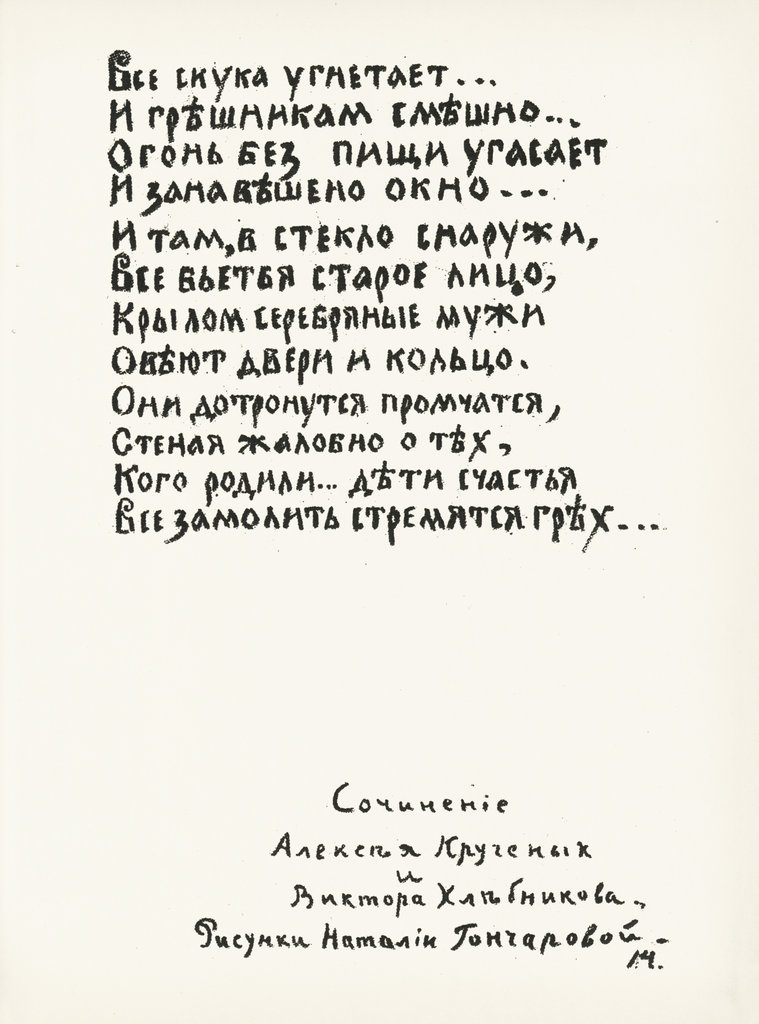 Все скука угнетает...
И грѣшникам смѣшно...
Огонь без пищи угасает
И занавѣшено окно...
И там, в стекло снаружи,
Все бьется старое лицо,
Крылом серебряные мужи
Овѣют двери и кольцо.
Они дотронутся промчатся,
Стеная жалобно о тѣх,
Кого родили... дѣти счастья
Все замолить стремятся грѣх...
Сочиненіе
Алексѣя Крученых
и
Виктора Хлѣбникова.,
Рисунки Наталіи Гончаровой -
14.